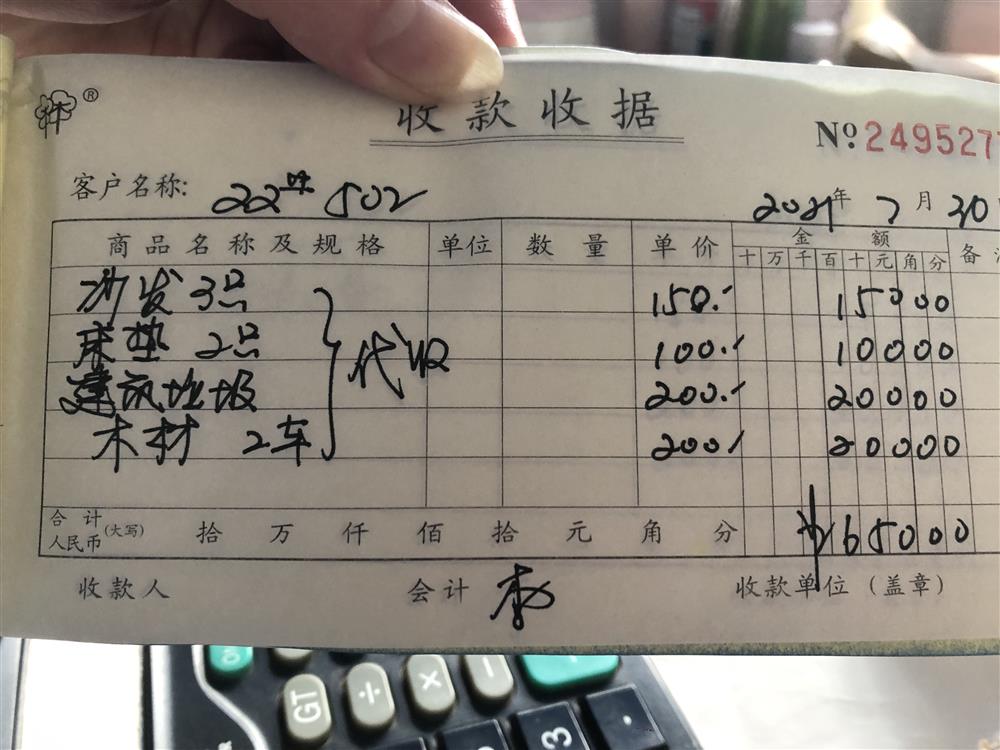 收款收据
№ 2495277
客户名称: 22# 502
2021年 7月 30
商品名称及规格 单位 数量 单价 金额 备
十 万 千 百 十 元 角 分
沙发 3只 150.- 15000
床垫 2只 代收 100.- 10000
建筑垃圾 200.- 20000
木材 2车 200.- 20000
合计人民币(大写) 拾 万 仟 佰 拾 元 角 分 ¥65000
收款人 会计 收款单位(盖章)
GT ÷ × −
3 .